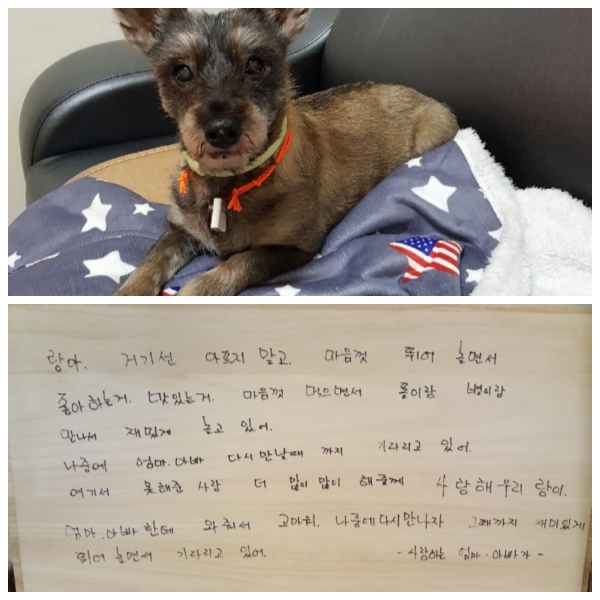 랑아. 거기선 아프지 말고. 마음껏 뛰어 놀면서
좋아하는거. 맛있는거. 마음껏 먹으면서 똘이랑 별이랑
만나서 재밌게 놀고 있어.
나중에 엄마.아빠 다시 만날때 까지 기다리고 있어.
여기서 못해준 사랑 더 많이 많이 해줄께 사랑해 우리 랑이.
엄마.아빠한테 와줘서 고마워. 나중에 다시만나자 그때까지 재미있게
뛰어 놀면서 기다리고 있어. -사랑하는 엄마.아빠가-